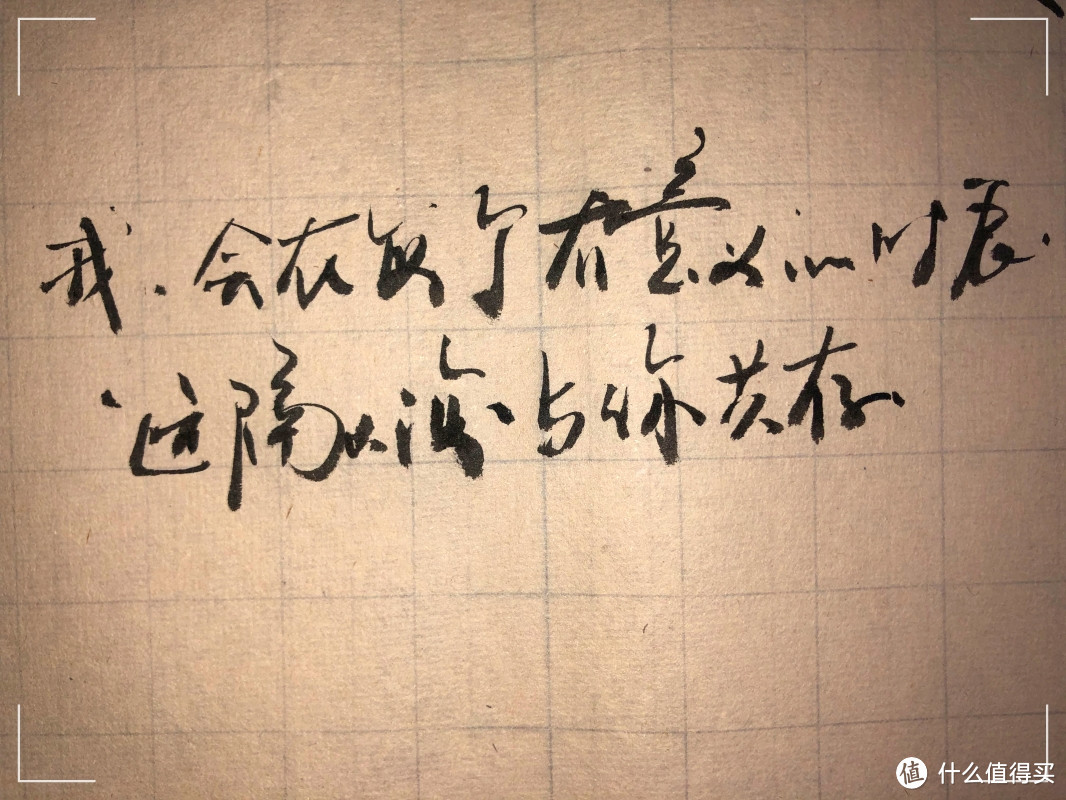 我会在每个有意义的时辰
远隔山海与你共存
值 什么值得买